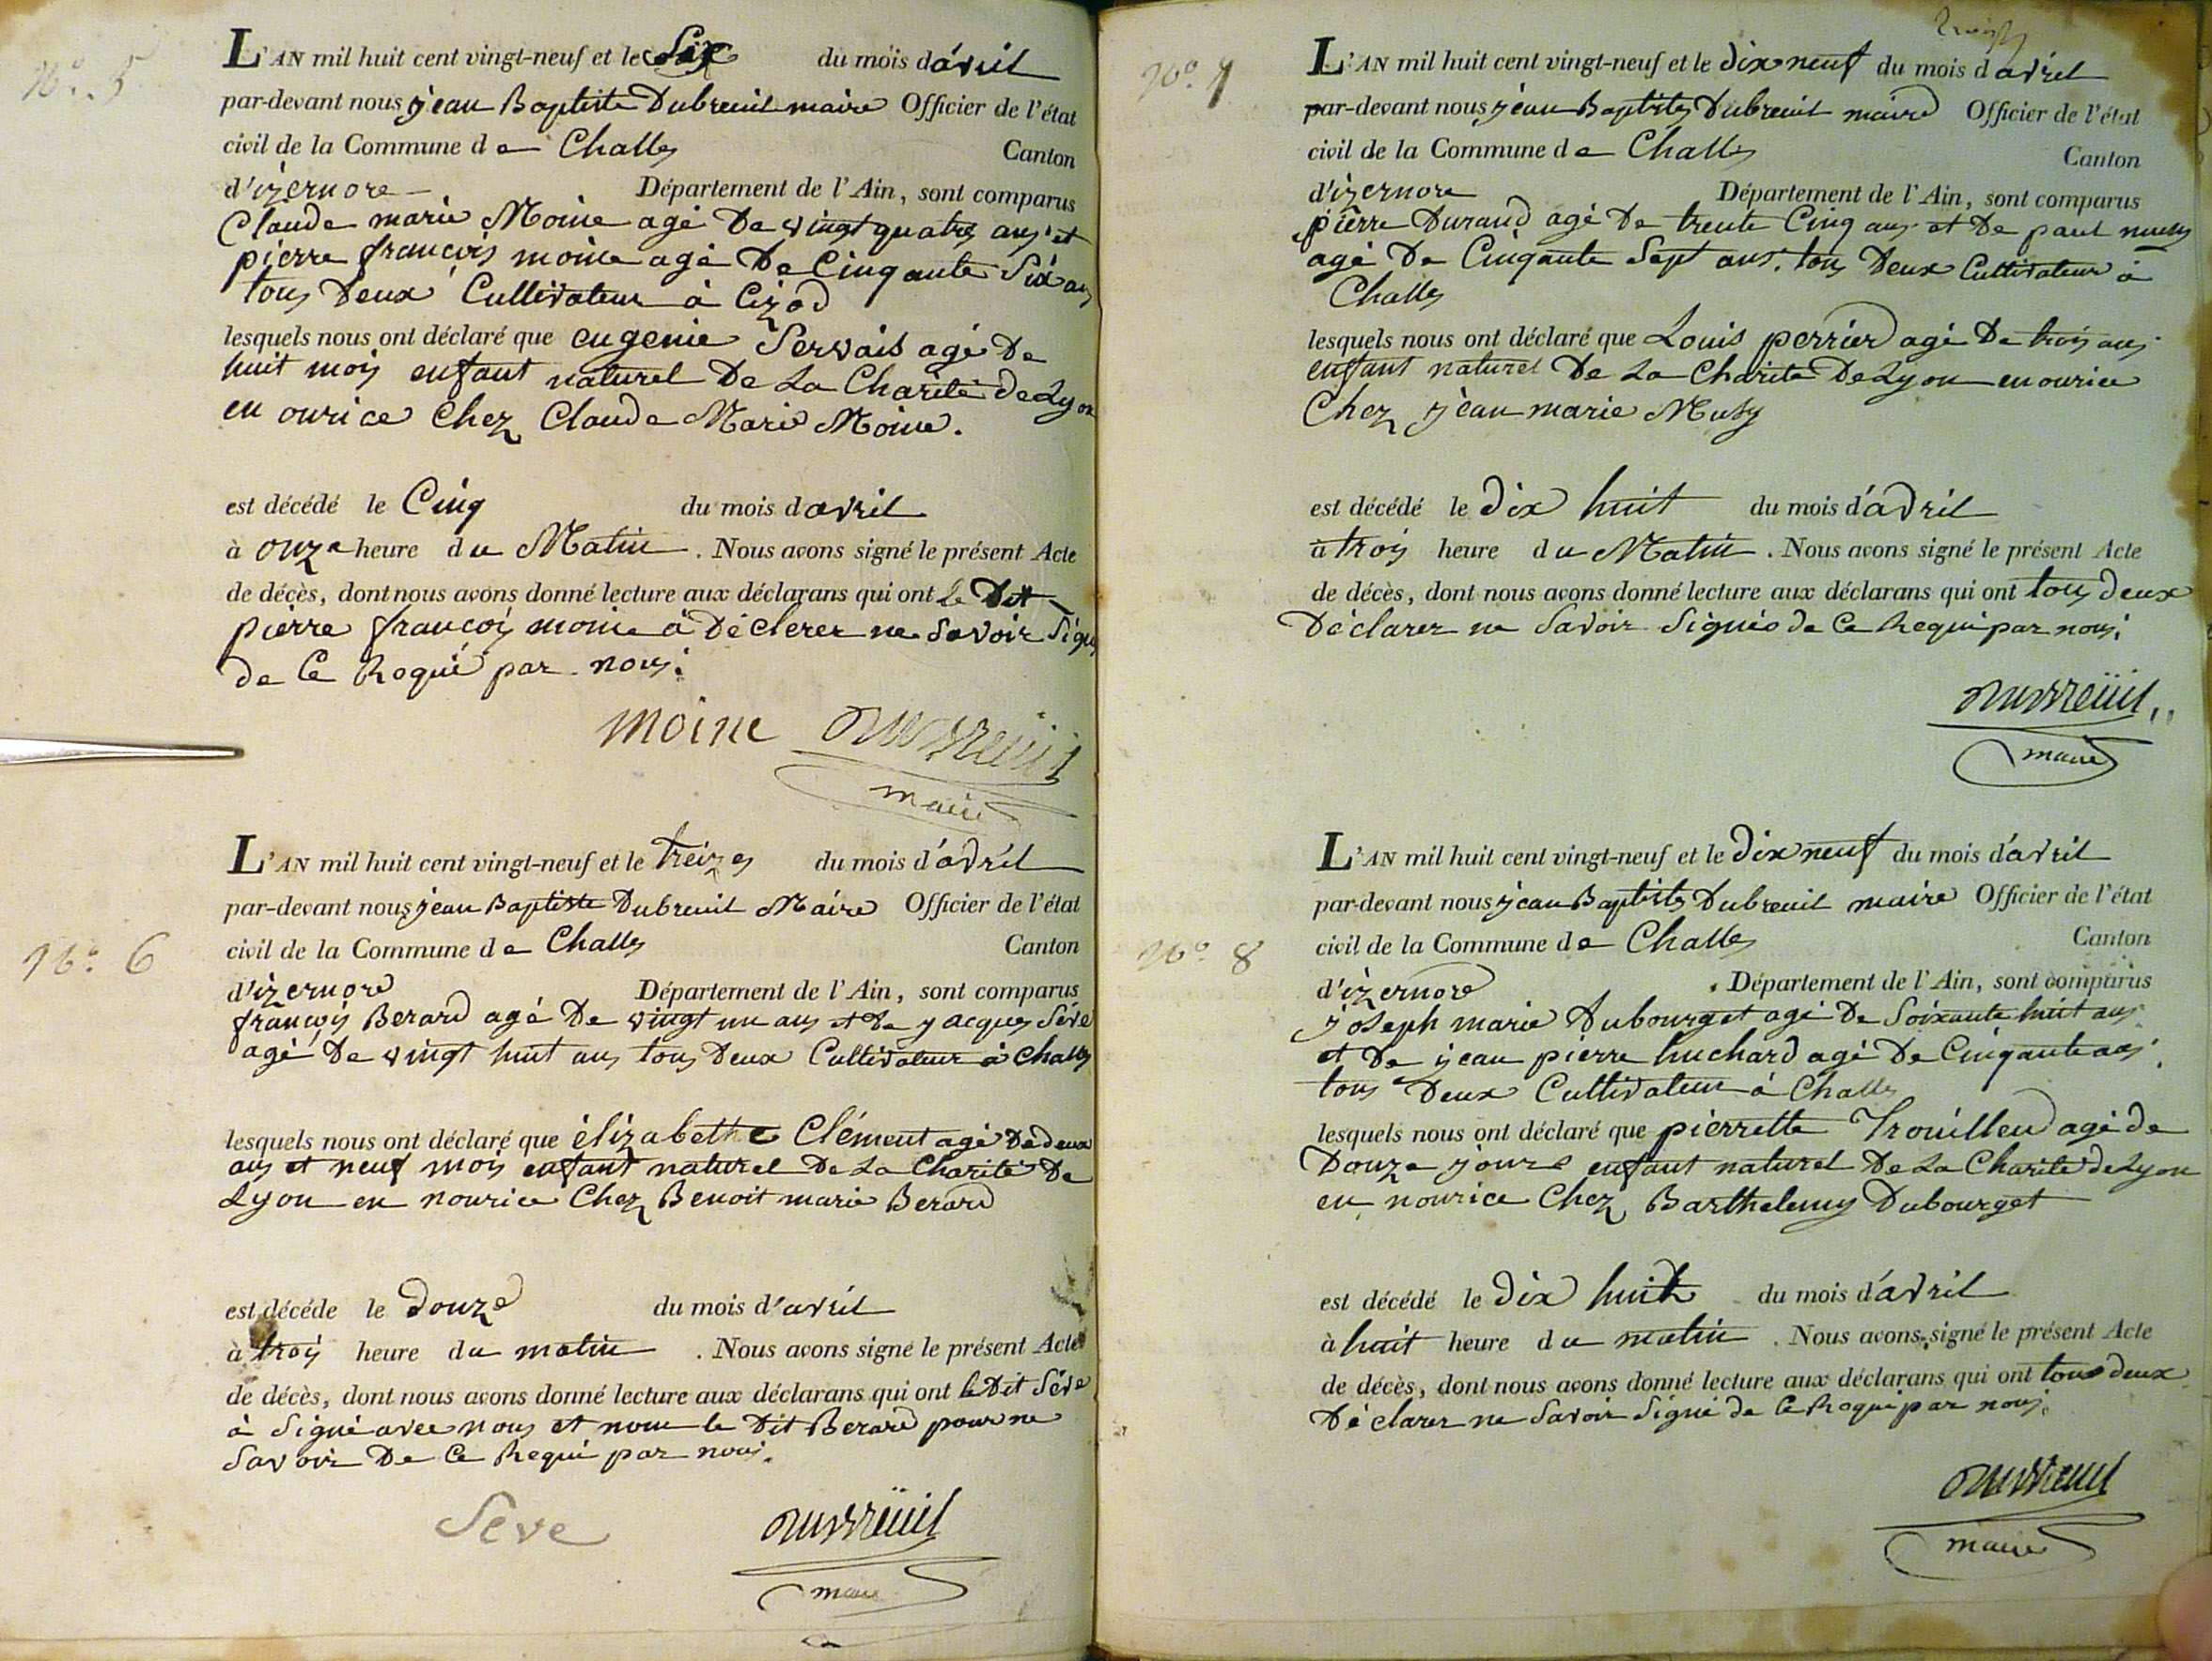 N°. 5
L'AN mil huit cent vingt-neuf et le Six du mois d'avril
par-devant nous jean Baptiste Dubreuil maire Officier de l'état
civil de la Commune de Challes Canton
d'izernore Département de l'Ain, sont comparus
Claude marie Moine agé De vingt quatres ans et
pierre françois moine agé De Cinqante Six ans
tous Deux Cultivateur à Cizod
lesquels nous ont déclaré que eugenie Servais agé De
huit mois enfant naturel De La Charité de Lyon
en ourice Chez Claude Marie Moine.
est décédé le Cinq du mois d'avril
à onze heure du Matin. Nous avons signé le présent Acte
de décès, dont nous avons donné lecture aux déclarans qui ont le Dit
pierre françois moine à Déclerer ne Savoir Signé
de Ce Requi par nous.
moine Dubreüil
maire
N°. 6
L'AN mil huit cent vingt-neuf et le treize du mois d'avril
par-devant nous jean Baptiste Dubreuil Maire Officier de l'état
civil de la Commune de Challes Canton
d'izernore Département de l'Ain, sont comparus
françois Berard agé De vingt un ans et De jacques Séve
agé De vingt huit ans tous Deux Cultivateur à Challes
lesquels nous ont déclaré que élizabethe Clément agé De deux
ans et neuf mois enfant naturel De La Charité De
Lyon en nourice Chez Benoit marie Berard
est décéde le douze du mois d'avril
à trois heure du matin. Nous avons signé le présent Acte
de décès, dont nous avons donné lecture aux déclarans qui ont le Dit Séve
à Signé avec nous et nom le Dit Berard pour ne
Savoir De Ce Requi par nous.
Seve Dubreüil
maire
N°. 7
L'AN mil huit cent vingt-neuf et le dix neuf du mois d'avril
par-devant nous jean Baptiste Dubreuil maire Officier de l'état
civil de la Commune de Challes Canton
d'izernore Département de l'Ain, sont comparus
pierre Durand agé De trente Cinq ans et De paul
agé De Cinqante Sept ans. tous Deux Cultivateur à
Challes
lesquels nous ont déclaré que Louis perrier agé De trois ans
enfant naturel De La Charité De Lyon en ourice
Chez jean marie Musy
est décédé le dix huit du mois d'avril
à trois heure du Matin. Nous avons signé le présent Acte
de décès, dont nous avons donné lecture aux déclarans qui ont tous deux
Déclarer ne Savoir Signés de Ce Requi par nous.
Dubreüil
maire
N° 8
L'AN mil huit cent vingt-neuf et le dix neuf du mois d'avril
par-devant nous jean Baptiste Dubreuil maire Officier de l'état
civil de la Commune de Challes Canton
d'izernore Département de l'Ain, sont comparus
joseph marie Dubourget agé De Soixante huit ans
et De jean pierre huchard agé De Cinqante ans
tous Deux Cultivateur à Challes
lesquels nous ont déclaré que pierrette Trouilleu agé de
Douze jours enfant naturel De La Charité de Lyon
en nourice Chez Barthelemy Dubourget
est décédé le dix huit du mois d'avril
à huit heure du matin. Nous avons signé le présent Acte
de décès, dont nous avons donné lecture aux déclarans qui ont tous deux
Déclarer ne Savoir Signé de Ce Requi par nous.
Dubreuil
maire